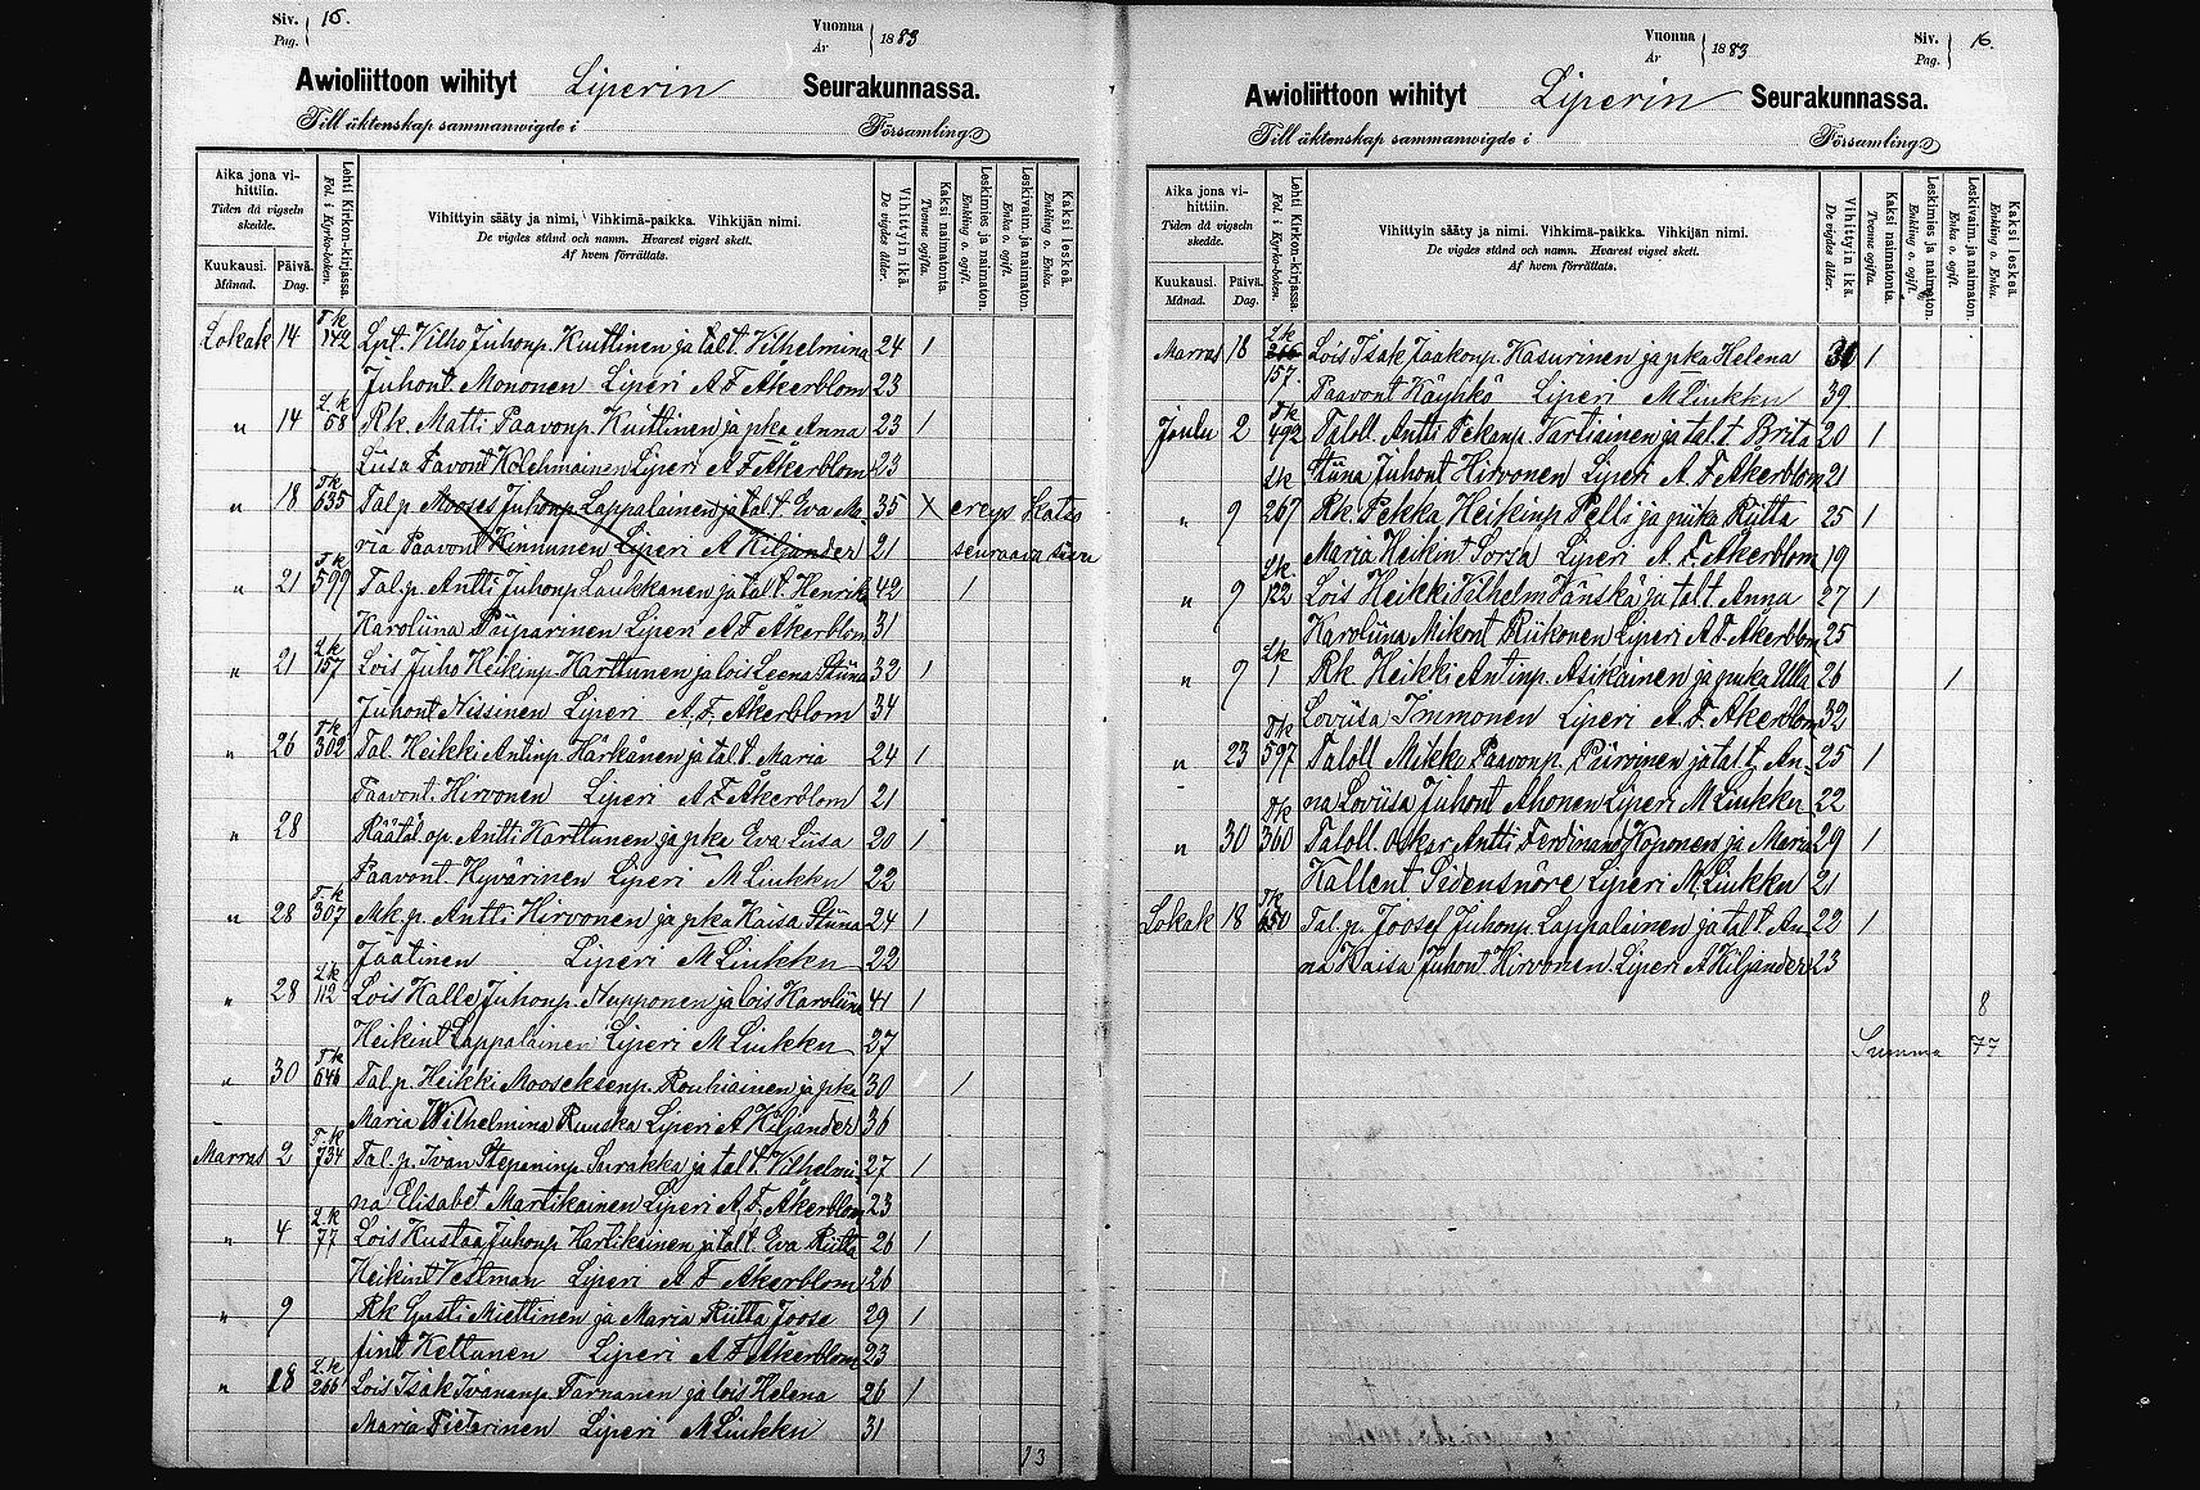 Siv. Pag. 15. Vuonna År 1883
Awioliittoon wihityt Liperin Seurakunnassa.
Till äktenskap sammanwigde i Församling.
Aika jona vihittiin. Tiden då vigseln skedde.
Kuukausi. Månad. Päivä. Dag.
Lehti Kirkon-kirjassa. Fol. i Kyrko-boken.
Vihittyin sääty ja nimi, Vihkimä-paikka. Vihkijän nimi.
De vigdes stånd och namn. Hvarest vigsel skett.
Af hvem förrättats.
Vihittyin ikä. De vigdes ålder.
Kaksi naimatonta. Tvenne ogifta.
Leskimies ja naimaton. Enkling o. ogift.
Leskivaim. ja naimaton. Enka o. ogift.
Kaksi leskeä. Enkling o. Enka.
Lokak 14 T.k 142 Lpt. Vilho Juhonp. Kuittinen ja tal.t. Vilhelmina 24 1
Juhont. Mononen Liperi A F Åkerblom 23
" 14 L.k 58 Rk. Matti Paavonp. Kuittinen ja pka Anna 23 1
Liisa Pavont Kolehmainen Liperi A F Åkerblom 23
" 18 T.k 635 Tal.p Mooses Juhonp. Lappalainen ja tal.t. Eva Ma- 35 X ereys katso
ria Paavont Kinnunen Liperi A Kiljander 21 seuraava sivu
" 21 T.k 599 Tal.p. Antti Juhonp Laukkanen ja tal.t. Henrika 42 1
Karoliina Piiparinen Liperi A F Åkerblom 31
" 21 L.k 157 Lois Juho Heikinp. Karttunen ja lois Leena Stiina 32 1
Juhont Nissinen Liperi A. F. Åkerblom 34
" 26 T.k 302 Tal. Heikki Antinp. Härkänen ja tal.t. Maria 24 1
Paavont. Hirvonen Liperi A F Åkerblom 21
" 28 Räätäl op. Antti Karttunen ja pka Eva Liisa 20 1
Paavont. Hyvärinen Liperi M Liukku 22
" 28 T.k 307 Mk.p. Antti Hirvonen ja pka Kaisa Stiina 24 1
Jäätinen Liperi M Liukku 22
" 28 L.k 112 Lois Kalle Juhonp. Nupponen ja lois Karoliina 41 1
Heikint Lappalainen Liperi M Liukku 27
" 30 T.k 646 Tal.p. Heikki Mooseksenp. Rouhiainen ja pka 30 1
Maria Wilhelmina Ruuska Liperi A Kiljander 36
Marras 2 T.k 734 Tal.p. Ivan Stepaninp. Surakka ja tal.t. Vilhelmi- 27 1
na Elisabet Martikainen Liperi A. F. Åkerblom 23
" 4 L.k 77 Lois Kustaa Juhonp Hartikainen ja tal.t. Eva Riitta 26 1
Heikint Vestman Liperi A F Åkerblom 26
" 9 Rk Gusti Miettinen ja Maria Riitta Joose 29 1
fint Kettunen Liperi A F Åkerblom 23
" 18 L.k 266 Lois Isak Ivananp. Tarnanen ja lois Helena 26 1
Maria Pietarinen Liperi M Liukku 31
13
Vuonna År 1883 Siv. Pag. 16.
Awioliittoon wihityt Liperin Seurakunnassa.
Till äktenskap sammanwigde i Församling.
Aika jona vihittiin. Tiden då vigseln skedde.
Kuukausi. Månad. Päivä. Dag.
Lehti Kirkon-kirjassa. Fol. i Kyrko-boken.
Vihittyin sääty ja nimi. Vihkimä-paikka. Vihkijän nimi.
De vigdes stånd och namn. Hvarest vigsel skett.
Af hvem förrättats.
Vihittyin ikä. De vigdes ålder.
Kaksi naimatonta. Tvenne ogifta.
Leskimies ja naimaton. Enkling o. ogift.
Leskivaim. ja naimaton. Enka o. ogift.
Kaksi leskeä. Enkling o. Enka.
Marras 18 L.k 266 Lois Isak Jaakonp. Kasurinen ja pka Helena 1
157. Paavont Käyhkö Liperi M Liukku 39
Joulu 2 T.k 492 Taloll. Antti Pekanp. Vartiainen ja tal.t. Brita 20 1
Stiina Juhont Hirvonen Liperi A. F Åkerblom 21
" 9 Lk 267 Rk. Pekka Heikinp Pelli ja piika Riitta 25 1
Maria Heikint Sorsa Liperi A. F. Åkerblom 19
" 9 Lk. 122 Lois Heikki Vilhelm Vänskä ja tal.t. Anna 27 1
Karoliina Mikont Riikonen Liperi A F. Åkerblom 25
" 9 Lk 1 Rk. Heikki Antinp. Asikainen ja piika Ulla 26 1
Loviisa Immonen Liperi A. F. Åkerblom 32
" 23 Tk 597 Taloll Mikko Paavonp. Piirvinen ja tal.t. An- 25 1
na Loviisa Juhont Ahonen Liperi M Liukku 22
" 30 Tk 360 Taloll. Oskar Antti Ferdinand Koponen ja Maria 29 1
Kallent Sidensnöre Liperi M. Liukku 21
Lokak 18 Tk 650 Tal.p. Joosef Juhonp. Lappalainen ja tal.t. An- 22 1
na Kaisa Juhont. Hirvonen Liperi A Kiljander 23
8
Summa 77